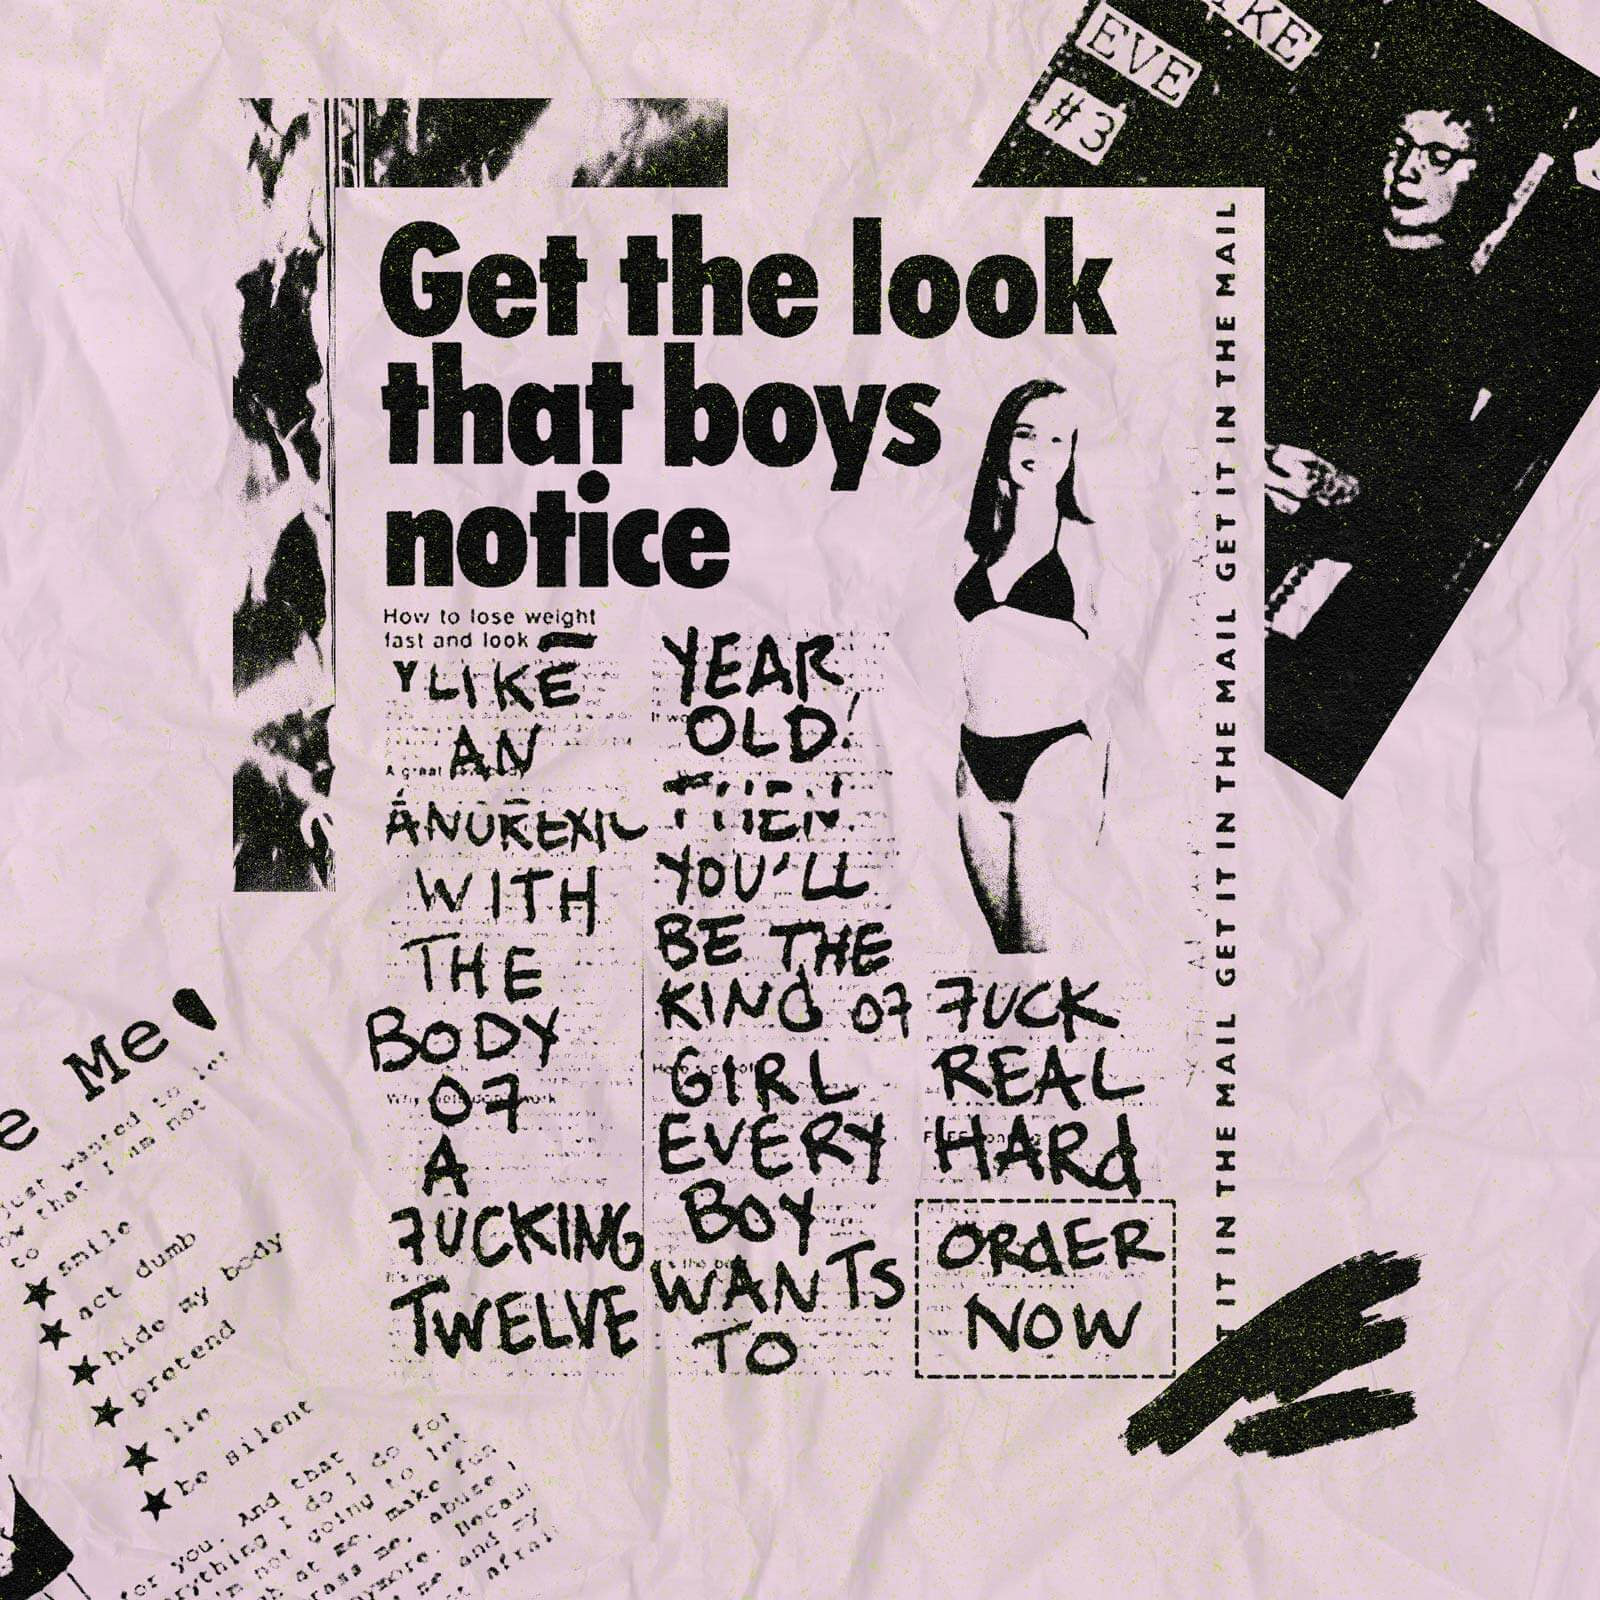 IKE
EVE
#3
Get the look
that boys
notice
How to lose weight
fast and look
LIKE
AN
ANOREXIC
WITH
THE
BODY
OF
A
FUCKING
TWELVE
YEAR
OLD!
THEN
YOU'LL
BE THE
KIND OF
GIRL
EVERY
BOY
WANTS
TO
FUCK
REAL
HARD
ORDER
NOW
IT IN THE MAIL GET IT IN THE MAIL GET IT IN THE MAIL GET IT IN THE MAIL
e Me
just wanted to let
ow that I am not
to
★ smile
★ act dumb
★ hide my body
★ pretend
★ lie
★ be silent
for you. And that
erything I do I do for
'm not going to let
gh at me, make fun
rass me, abuse
nymore. Becau
me and my
t afrai